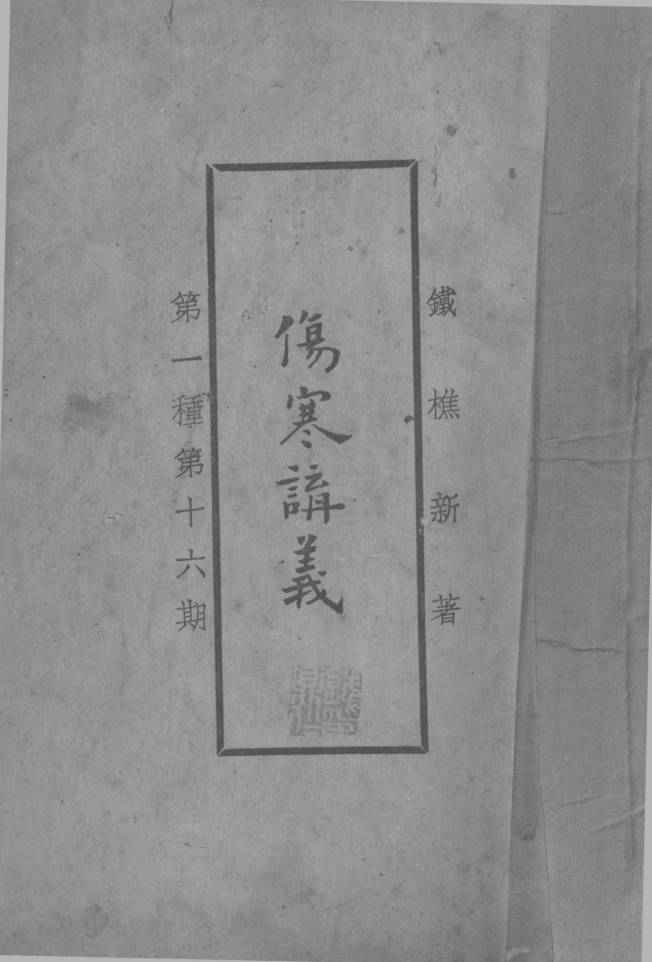 鐵樵新著
傷寒講義
第一種第十六期